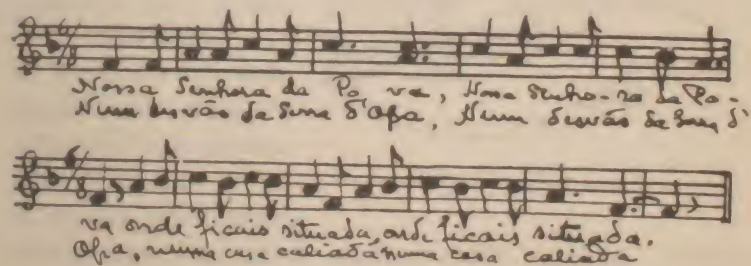 Nossa Senhora da Po va, Nossa Senho-ra da Po-
Num desvão da Serra d'Opa, Num desvão da Serra d'
va onde ficais situada, onde ficais situada.
Opa, numa casa caliada numa casa caliada